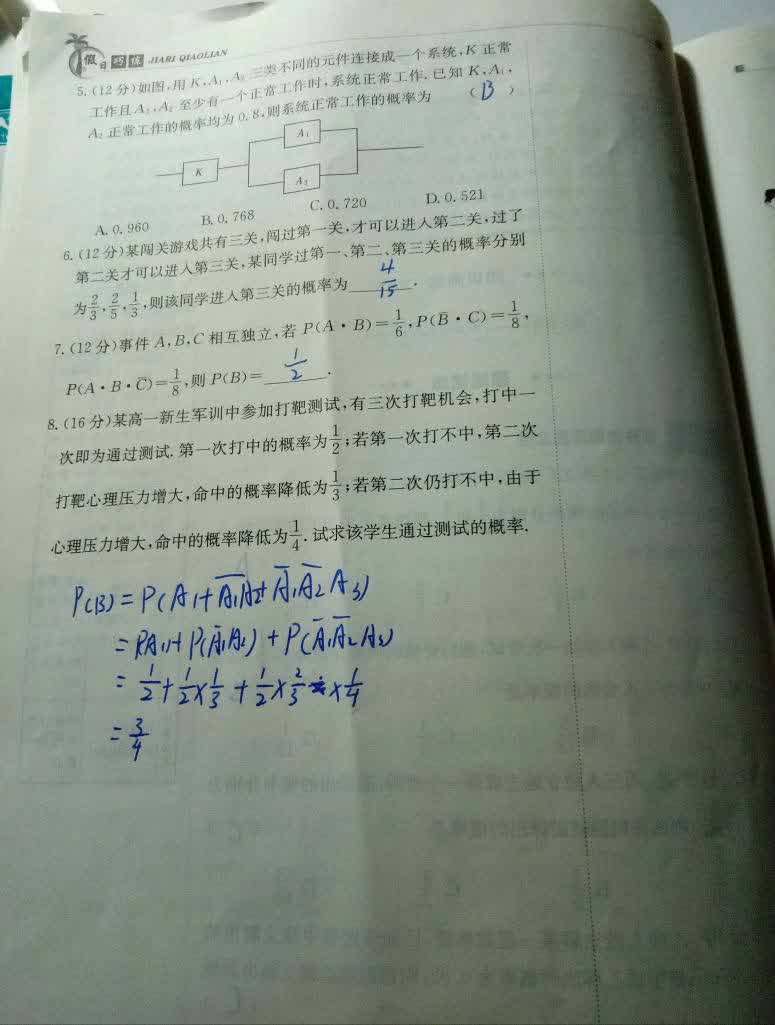 假日巧练 JIARI QIAOLIAN
5.(12分)如图,用K,A₁,A₂三类不同的元件连接成一个系统,K正常
工作且A₁,A₂至少有一个正常工作时,系统正常工作.已知K,A₁,
A₂正常工作的概率均为0.8,则系统正常工作的概率为 ( B )
A₁
K
A₂
A. 0.960 B. 0.768 C. 0.720 D. 0.521
6.(12分)某闯关游戏共有三关,闯过第一关,才可以进入第二关,过了
第二关才可以进入第三关,某同学过第一、第二、第三关的概率分别
为2/3,2/5,1/3,则该同学进入第三关的概率为 4/15 .
7.(12分)事件A,B,C相互独立,若P(A·B)=1/6,P(B̄·C)=1/8,
P(A·B·C̄)=1/8,则P(B)= 1/2 .
8.(16分)某高一新生军训中参加打靶测试,有三次打靶机会,打中一
次即为通过测试.第一次打中的概率为1/2;若第一次打不中,第二次
打靶心理压力增大,命中的概率降低为1/3;若第二次仍打不中,由于
心理压力增大,命中的概率降低为1/4.试求该学生通过测试的概率.
P(B)=P(A₁+Ā₁A₂+Ā₁Ā₂A₃)
=P(A₁)+P(Ā₁A₂)+P(Ā₁Ā₂A₃)
=1/2+1/2×1/3+1/2×2/3×1/4
=3/4